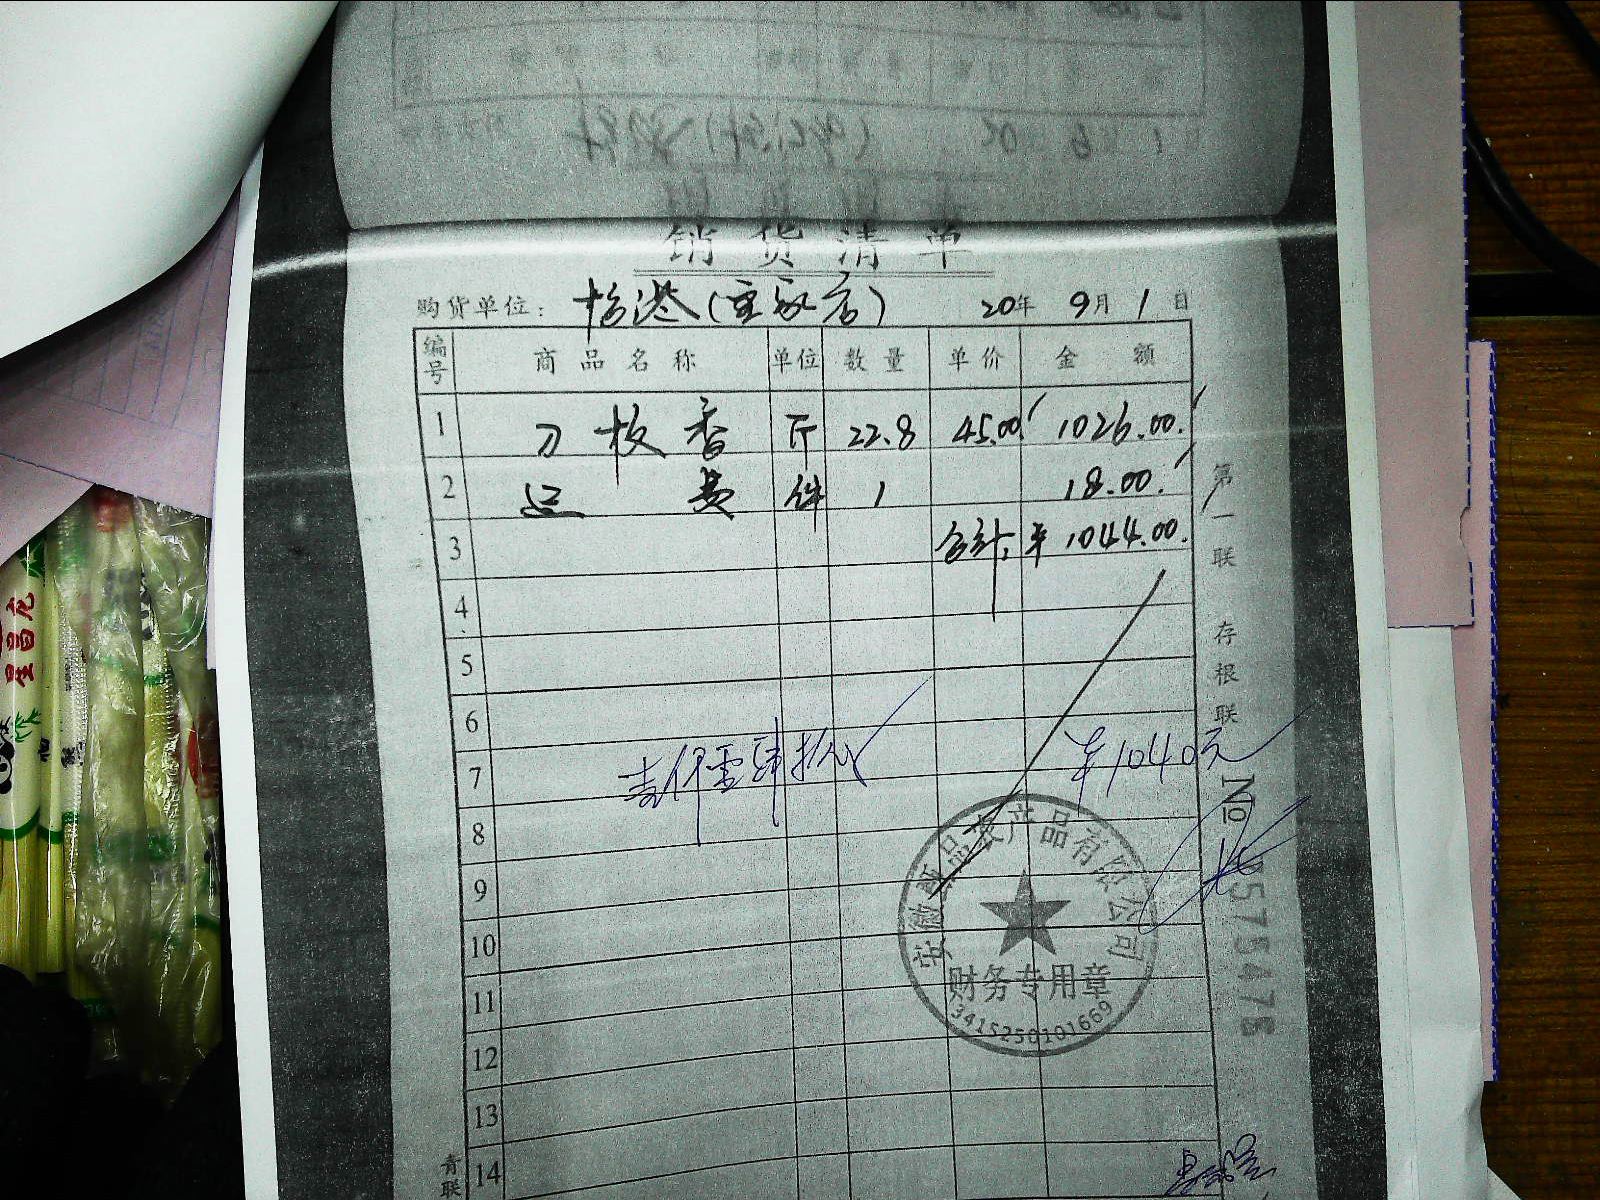 销货清单
购货单位: 怡港(皇家店) 20年 9月 1日
编号 商品名称 单位 数量 单价 金额
1 刀板香 斤 22.8 45.00 1026.00
2 运费 件 1 18.00
3 合计: ¥1044.00
4
5
6
7 壹仟零肆拾 ¥1040元
8
9
10
11
12
13
14
第一联 存根联
No 575475
品农产品有限公司
财务专用章
3415250101669
青联